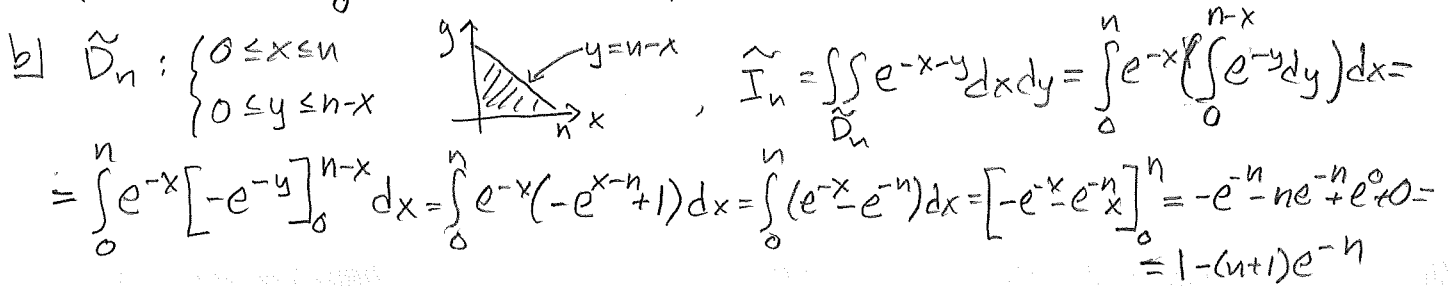 b] D̃ₙ : { 0 ≤ x ≤ n   y   y = n-x , Ĩₙ = ∬_D̃ₙ e^{-x-y} dxdy = ∫₀ⁿ e^{-x} (∫₀^{n-x} e^{-y} dy) dx =
0 ≤ y ≤ n-x   n   x
= ∫₀ⁿ e^{-x} [-e^{-y}]₀^{n-x} dx = ∫₀ⁿ e^{-x} (-e^{x-n} + 1) dx = ∫₀ⁿ (e^{-x} - e^{-n}) dx = [-e^{-x} - e^{-n} x]₀ⁿ = -e^{-n} - ne^{-n} + e⁰ + 0 =
= 1 - (n+1)e^{-n}